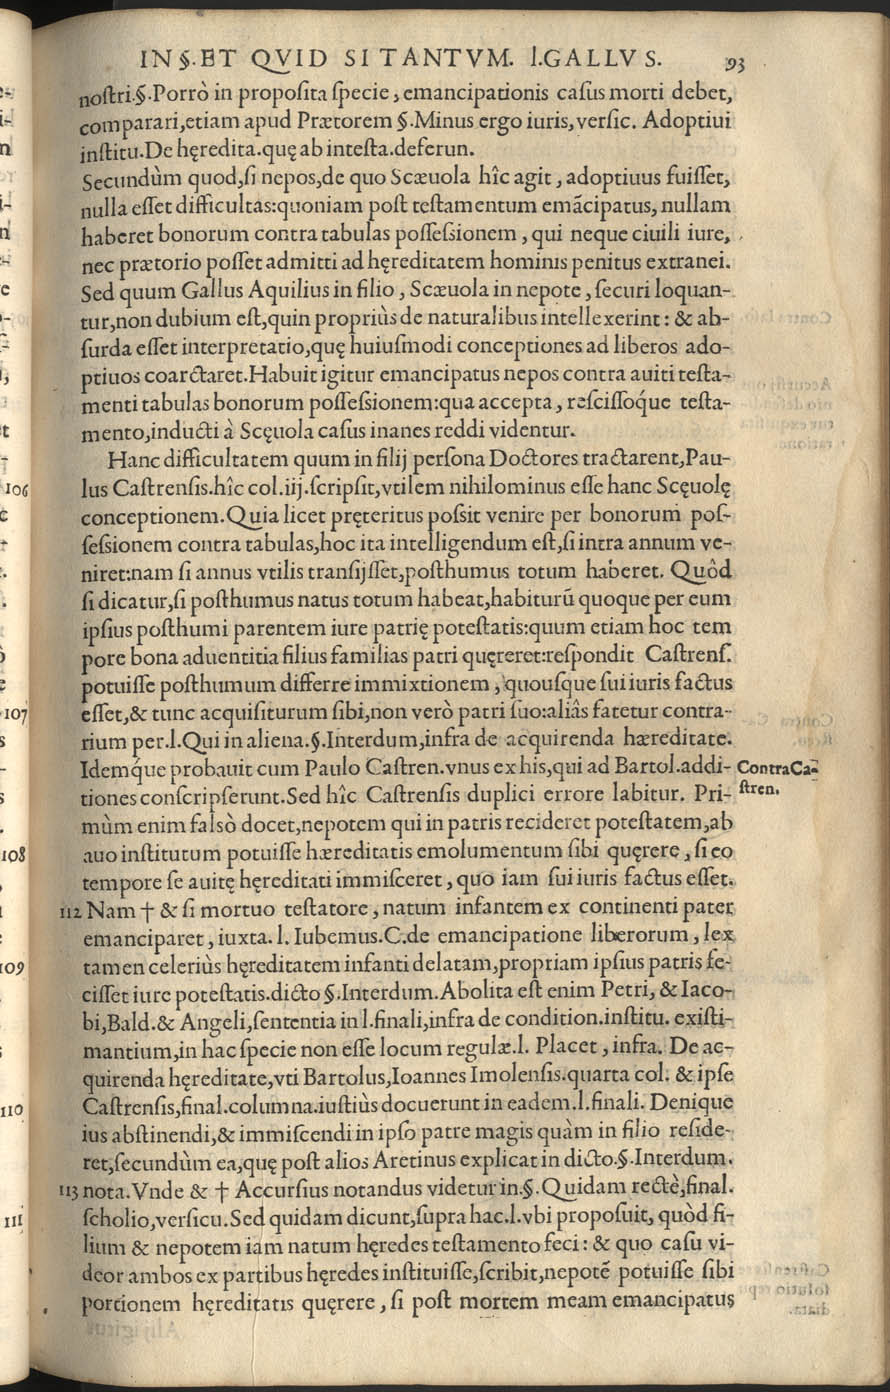 IN §.ET QVID SI TANTVM. l.GALLVS. 93
noſtri.§.Porrò in propoſita ſpecie, emancipationis caſus morti debet,
comparari,etiam apud Prætorem §.Minus ergo iuris, verſic. Adoptiui
inſtitu.De hęredita.quę ab inteſta.deferun.
Secundùm quod,ſi nepos,de quo Scæuola hîc agit, adoptiuus fuiſſet,
nulla eſſet difficultas:quoniam poſt teſtamentum emãcipatus, nullam
haberet bonorum contra tabulas poſſeſsionem, qui neque ciuili iure,
nec prætorio poſſet admitti ad hęreditatem hominis penitus extranei.
Sed quum Gallus Aquilius in filio, Scæuola in nepote, ſecuri loquan-
tur,non dubium eſt,quin propriùs de naturalibus intellexerint: & ab-
ſurda eſſet interpretatio,quę huiuſmodi conceptiones ad liberos ado-
ptiuos coarctaret.Habuit igitur emancipatus nepos contra auiti teſta-
menti tabulas bonorum poſſeſsionem:qua accepta, reſciſſoq́ue teſta-
mento,inducti à Scęuola caſus inanes reddi videntur.
Hanc difficultatem quum in filij perſona Doctores tractarent,Pau-
106
lus Caſtrenſis.hîc col.iij.ſcripſit,vtilem nihilominus eſſe hanc Scęuolę
conceptionem.Quia licet pręteritus poſsit venire per bonorum poſ-
ſeſsionem contra tabulas,hoc ita intelligendum eſt,ſi intra annum ve-
niret:nam ſi annus vtilis tranſijſſet,poſthumus totum haberet. Quòd
ſi dicatur,ſi poſthumus natus totum habeat,habiturũ quoque per eum
ipſius poſthumi parentem iure patrię poteſtatis:quum etiam hoc tem
pore bona aduentitia filius familias patri quęreret:reſpondit Caſtrenſ.
potuiſſe poſthumum differre immixtionem, quouſque ſui iuris factus
107
eſſet,& tunc acquiſiturum ſibi,non verò patri ſuo:aliâs fatetur contra-
rium per.l.Qui in aliena.§.Interdum,infra de acquirenda hæreditate.
Idemq́ue probauit cum Paulo Caſtren.vnus ex his,qui ad Bartol.addi-
Contra Ca-
ſtren.
tiones conſcripſerunt.Sed hîc Caſtrenſis duplici errore labitur. Pri-
mùm enim falsò docet,nepotem qui in patris recideret poteſtatem,ab
108
auo inſtitutum potuiſſe hæreditatis emolumentum ſibi quęrere, ſi eo
tempore ſe auitę hęreditati immiſceret, quo iam ſui iuris factus eſſet.
112 Nam † & ſi mortuo teſtatore, natum infantem ex continenti pater
emanciparet, iuxta. l. Iubemus.C.de emancipatione liberorum, lex
109
tamen celeriùs hęreditatem infanti delatam,propriam ipſius patris fe-
ciſſet iure poteſtatis.dicto §.Interdum.Abolita eſt enim Petri, & Iaco-
bi,Bald.& Angeli,ſententia in l.finali,infra de condition.inſtitu. exiſti-
mantium,in hac ſpecie non eſſe locum regulæ.l. Placet, infra. De ac-
quirenda hęreditate,vti Bartolus,Ioannes Imolenſis.quarta col. & ipſe
110
Caſtrenſis,final.columna.iuſtiùs docuerunt in eadem.l.finali. Denique
ius abſtinendi,& immiſcendi in ipſo patre magis quàm in filio reſide-
ret,ſecundùm ea,quę poſt alios Aretinus explicat in dicto.§.Interdum.
113 nota.Vnde & † Accurſius notandus videtur in.§.Quidam rectè,final.
111
ſcholio,verſicu.Sed quidam dicunt,ſupra hac.l.vbi propoſuit, quòd fi-
lium & nepotem iam natum hęredes teſtamento feci: & quo caſu vi-
deor ambos ex partibus hęredes inſtituiſſe,ſcribit,nepotẽ potuiſſe ſibi
portionem hęreditatis quęrere, ſi poſt mortem meam emancipatus